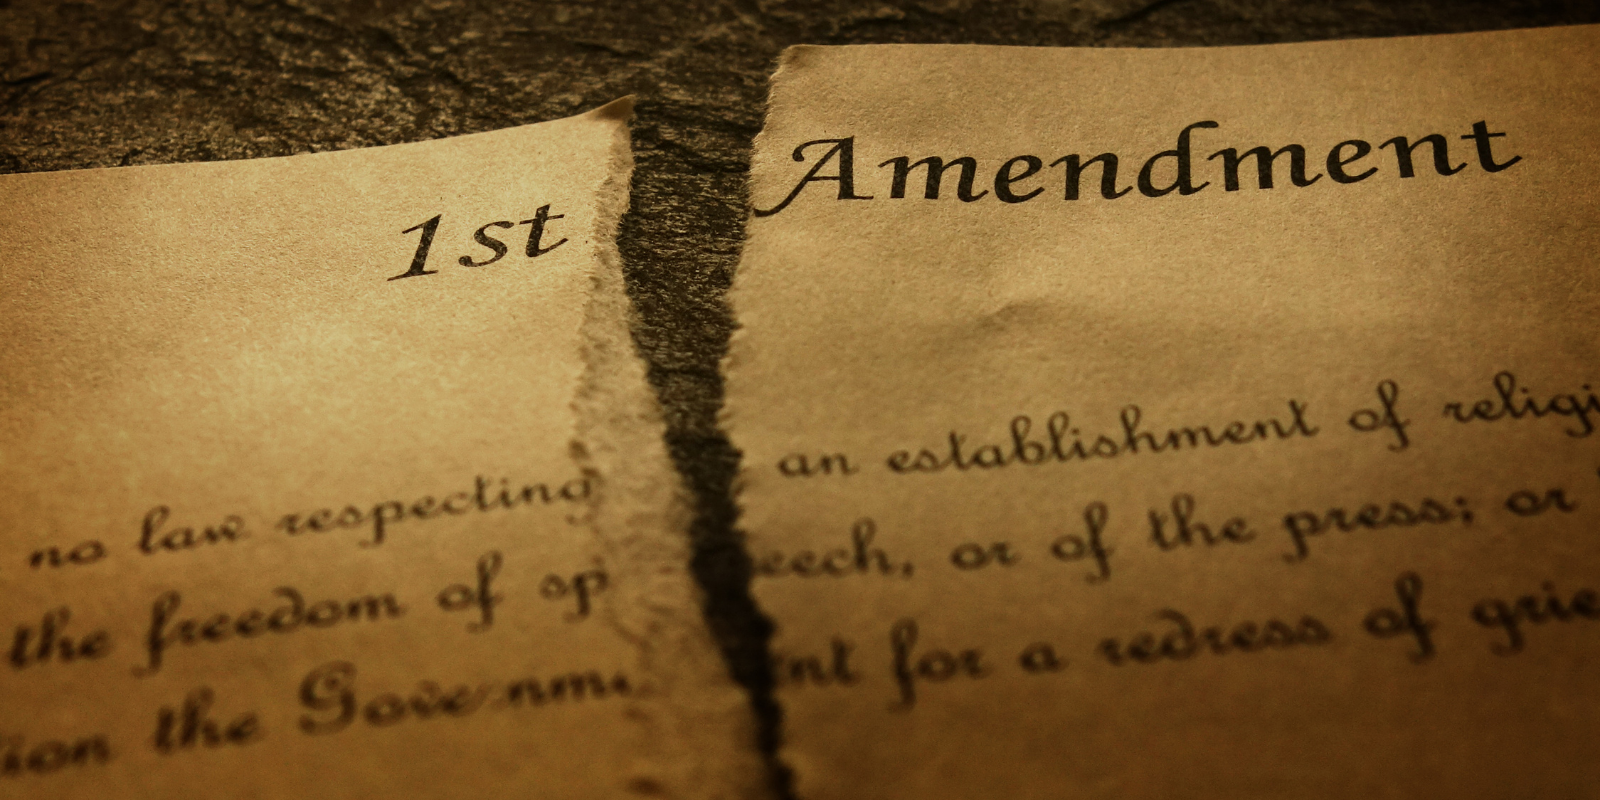 1st Amendment
no law respecting an establishment of religi
the freedom of speech, or of the press; or
ion the Governm nt for a redress of grie